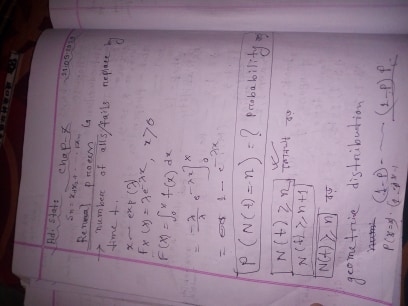 Adv. Stats
chap-7
Sn = x1+x2+ ...... +xn
Renewal process
→ number of alls/fails replace by
time t.
x ~ exp(λ)
Fx(x) = λe^-λx, x>0
F(x) = ∫₀ˣ f(x) dx
= -λ/λ e^-λx]₀ˣ
= 1 - e^-λx
P(N(t)=n) = ? probability
N(t) ≥ n
N(t) ≥ n+1
N(t) ≥ n বড়
geometric distribution
(1-p) - ...... (1-p) P
P(X=x) = (1-p)^x-1